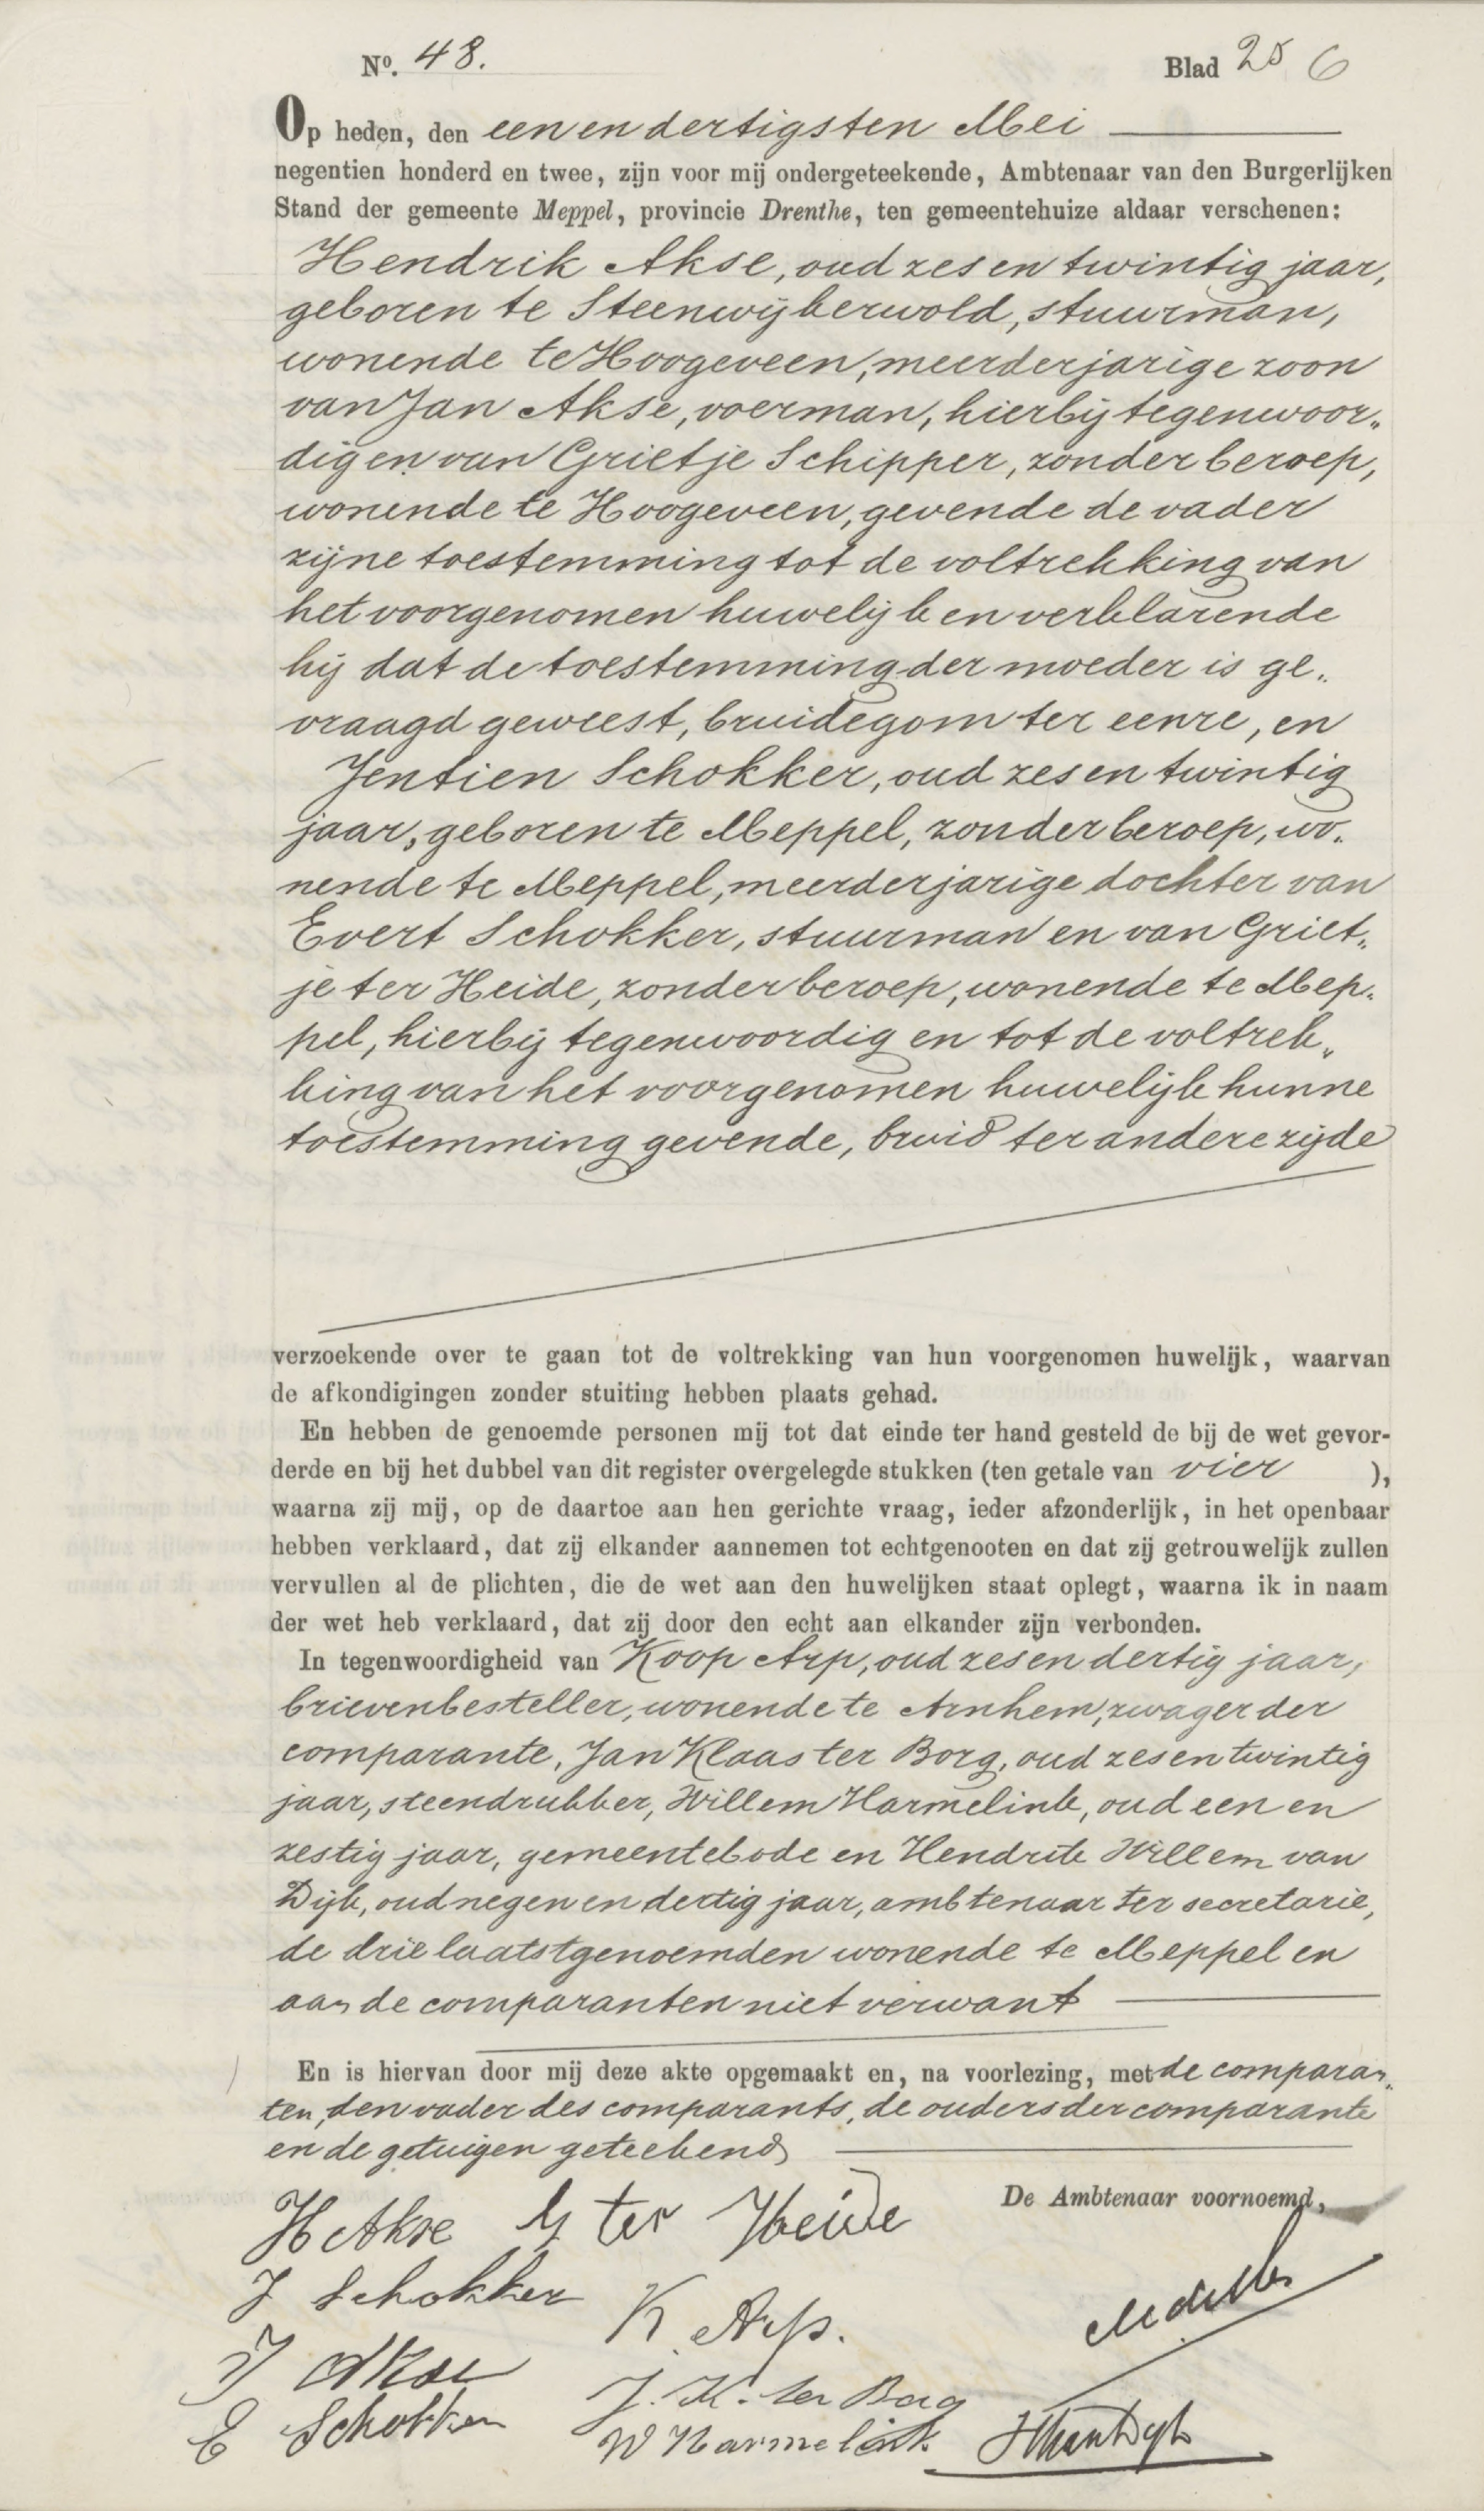 No. 48. Blad 25 6
Op heden, den een en dertigsten Mei
negentien honderd en twee, zijn voor mij ondergeteekende, Ambtenaar van den Burgerlijken
Stand der gemeente Meppel, provincie Drenthe, ten gemeentehuize aldaar verschenen:
Hendrik Akse, oud zes en twintig jaar,
geboren te Steenwijkerwold, stuurman,
wonende te Hoogeveen, meerderjarige zoon
van Jan Akse, voerman, hierbij tegenwoor„
dig en van Grietje Schipper, zonder beroep,
wonende te Hoogeveen, gevende de vader
zijne toestemming tot de voltrekking van
het voorgenomen huwelijk en verklarende
hij dat de toestemming der moeder is ge„
vraagd geweest, bruidegom ter eenre, en
Jentien Schokker, oud zes en twintig
jaar, geboren te Meppel, zonder beroep, wo„
nende te Meppel, meerderjarige dochter van
Evert Schokker, stuurman en van Griet„
je ter Heide, zonder beroep, wonende te Mep„
pel, hierbij tegenwoordig en tot de voltrek„
king van het voorgenomen huwelijk hunne
toestemming gevende, bruid ter andere zijde
verzoekende over te gaan tot de voltrekking van hun voorgenomen huwelijk, waarvan
de afkondigingen zonder stuiting hebben plaats gehad.
En hebben de genoemde personen mij tot dat einde ter hand gesteld de bij de wet gevor-
derde en bij het dubbel van dit register overgelegde stukken (ten getale van vier ),
waarna zij mij, op de daartoe aan hen gerichte vraag, ieder afzonderlijk, in het openbaar
hebben verklaard, dat zij elkander aannemen tot echtgenooten en dat zij getrouwelijk zullen
vervullen al de plichten, die de wet aan den huwelijken staat oplegt, waarna ik in naam
der wet heb verklaard, dat zij door den echt aan elkander zijn verbonden.
In tegenwoordigheid van Koop Arp, oud zes en dertig jaar,
brievenbesteller, wonende te Arnhem, zwager der
comparante, Jan Klaas ter Borg, oud zes en twintig
jaar, steendrukker, Willem Harmelink, oud een en
zestig jaar, gemeentebode en Hendrik Willem van
Dijk, oud negen en dertig jaar, ambtenaar ter secretarie,
de drie laatstgenoemden wonende te Meppel en
aan de comparanten niet verwant
En is hiervan door mij deze akte opgemaakt en, na voorlezing, met de comparan„
ten, den vader des comparants, de ouders der comparante
en de getuigen geteekend
De Ambtenaar voornoemd,
H Akse G ter Heide
J Schokker K Arp.
J Akse J. K. ter Borg
E Schokker W Harmelink HWvanDijk